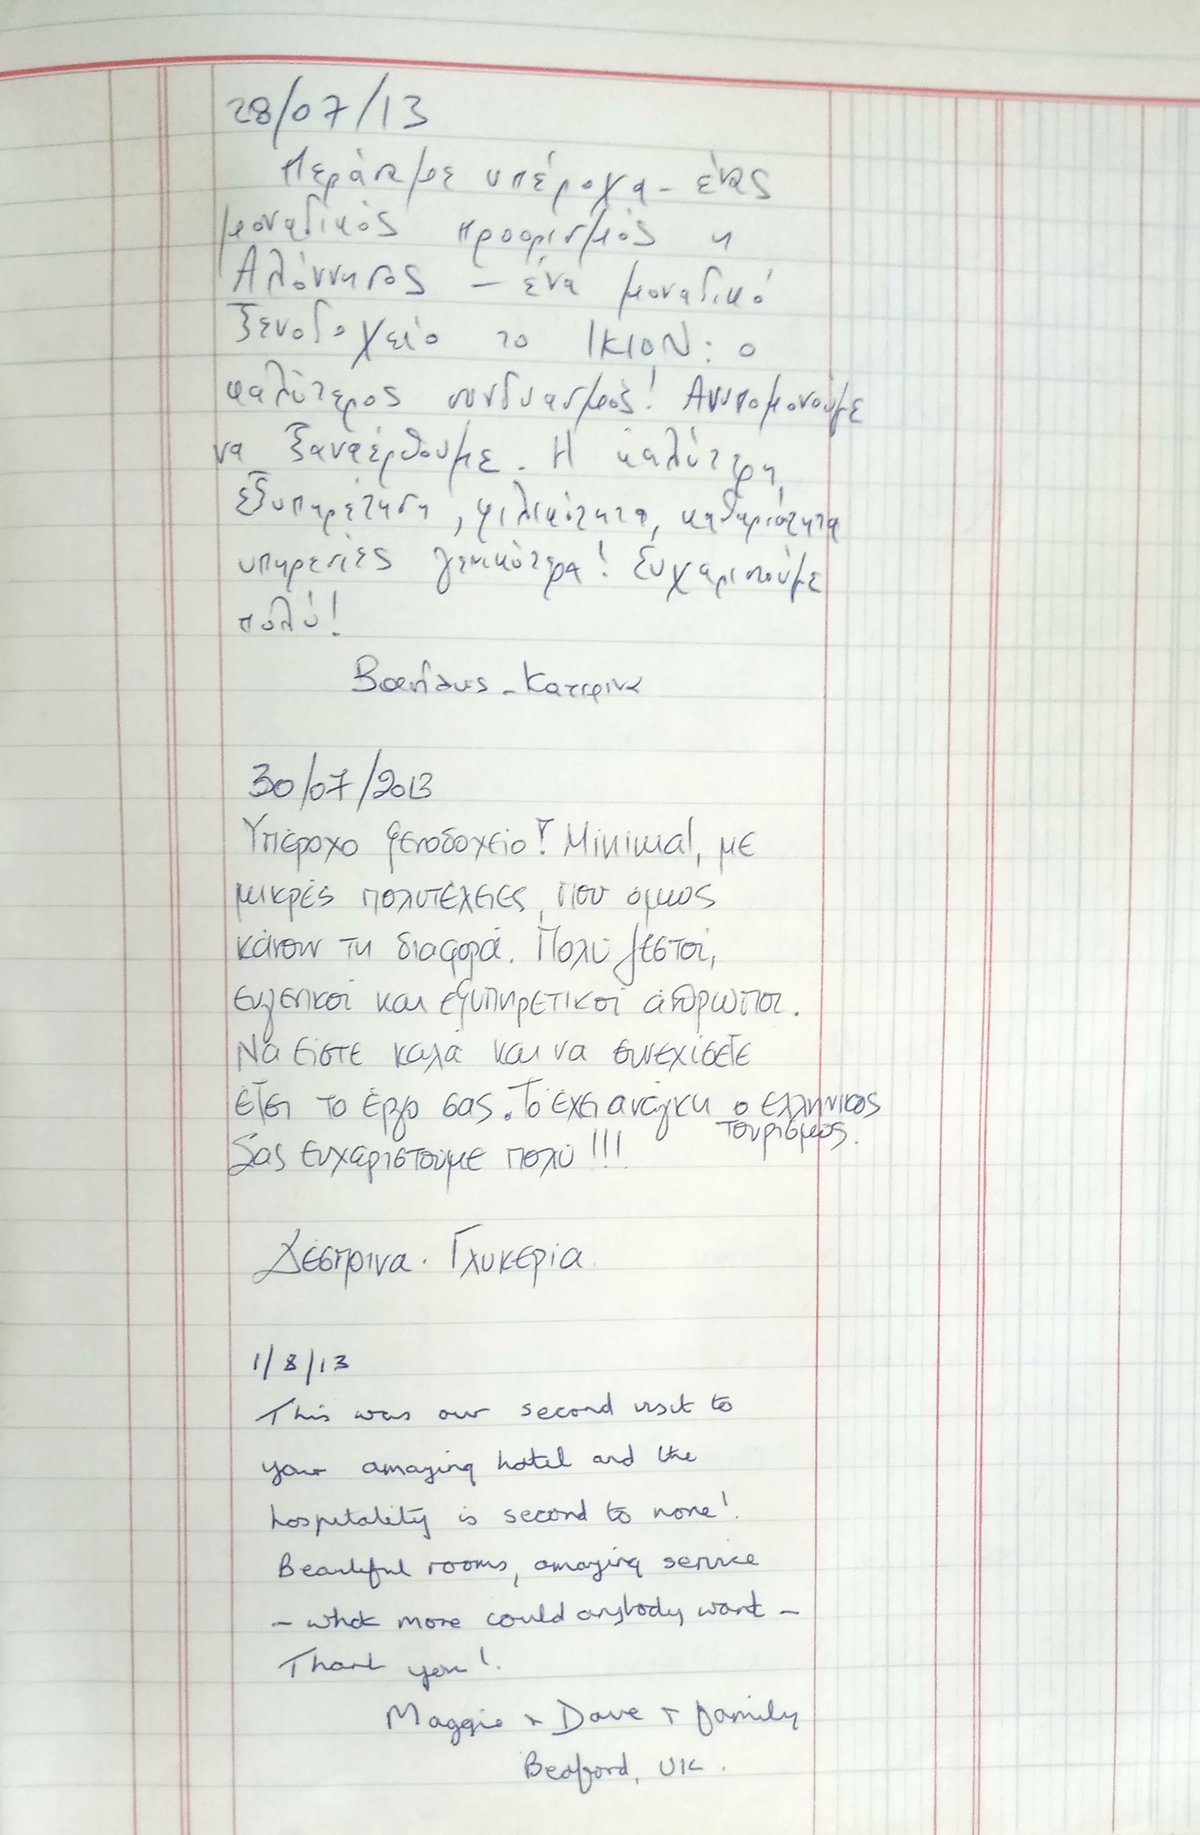 28/07/13
Περάσαμε υπέροχα - ένας
μοναδικός προορισμός η
Αλόννησος - ένα μοναδικό
ξενοδοχείο το ΙΚΙΟΝ: ο
καλύτερος συνδυασμός! Ανυπομονούμε
να ξαναέρθουμε. Η καλύτερη
εξυπηρέτηση, φιλικότητα, καθαριότητα
υπηρεσίες γενικότερα! Ευχαριστούμε
πολύ!
Βασίλης - Κατερίνα
30/07/2013
Υπέροχο ξενοδοχείο! Minimal, με
μικρές πολυτέλειες, που όμως
κάνουν τη διαφορά. Πολύ ζεστοί,
ευγενικοί και εξυπηρετικοί άνθρωποι.
Να είστε καλά και να συνεχίσετε
έτσι το έργο σας. Το έχει ανάγκη ο ελληνικός
τουρισμός.
Σας ευχαριστούμε πολύ!!!
Δέσποινα. Γλυκερία
1/8/13
This was our second visit to
your amazing hotel and the
hospitality is second to none!
Beautiful rooms, amazing service
- what more could anybody want -
Thank you!
Maggie + Dave + family
Bedford, UK.